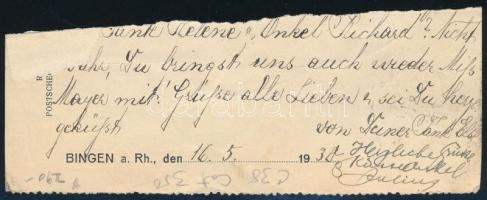 Tante Helene u. Onkel Richard? Nicht
wahr, Du bringst uns auch wieder Miss
Mayer mit! Grüße alle Lieben u. sei Du herzl
geküßt von Deiner Tante Else
BINGEN a. Rh., den 16. 5. 1938
Herzliche Grüße
Onkel
R
POSTSCHE